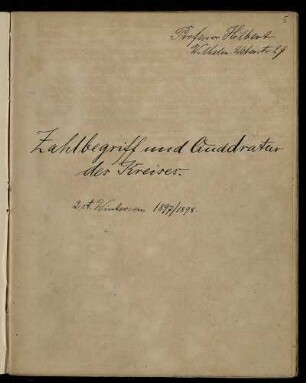 Professor Hilbert
Wilhelm Weberstr 29
Zahlbegriff und Quadratur
des Kreises.
2st. Wintersem 1897/1898.